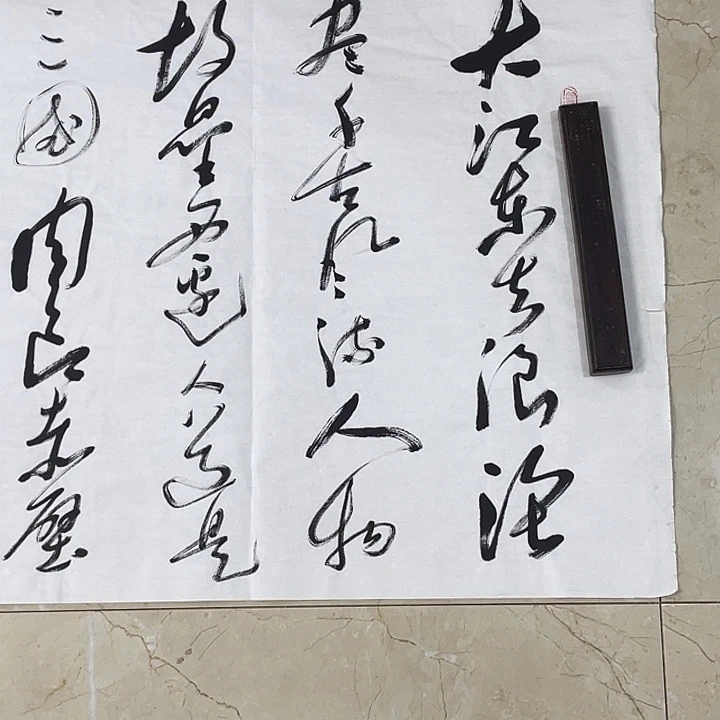 大江东去浪淘
尽千古风流人物
故垒西边人道是
三国周郎赤壁